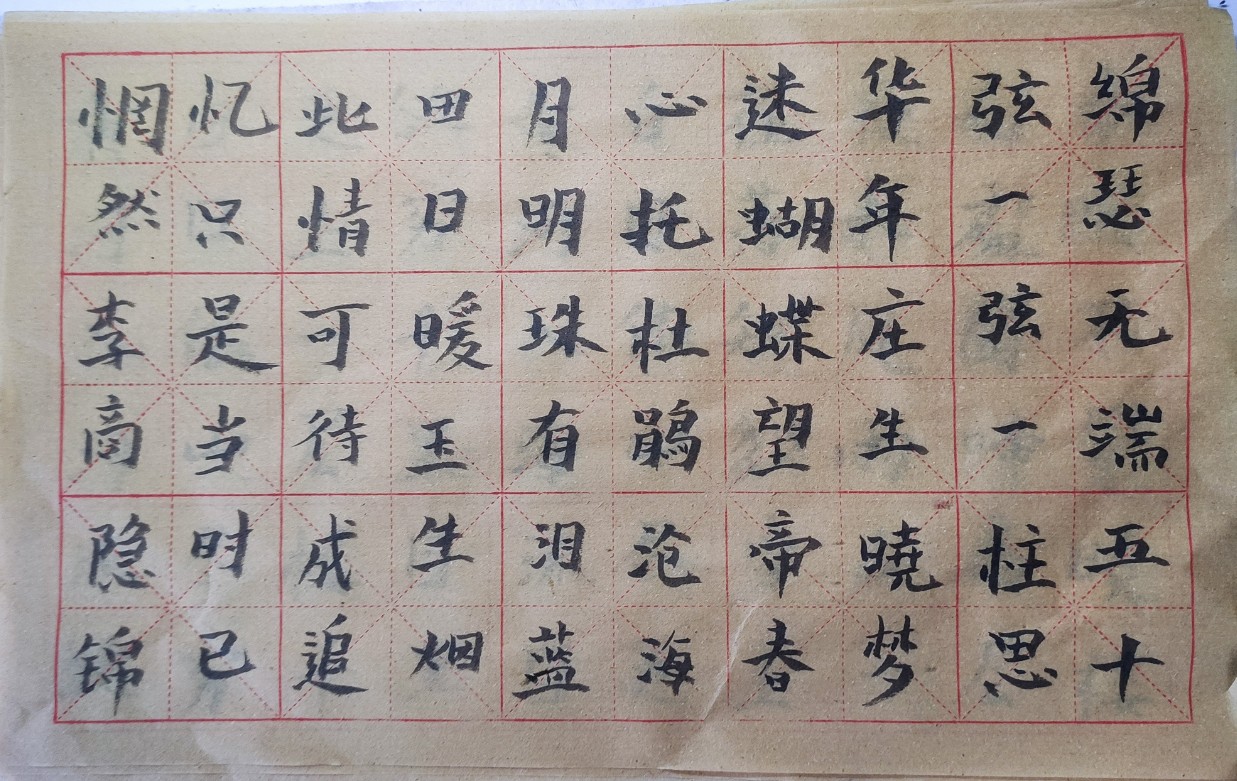 绵瑟无端五十
弦一弦一柱思
华年庄生曉梦
迷蝴蝶望帝春
心托杜鹃沧海
月明珠有泪蓝
田日暖玉生烟
此情可待成追
忆只是当时已
惘然李商隐锦